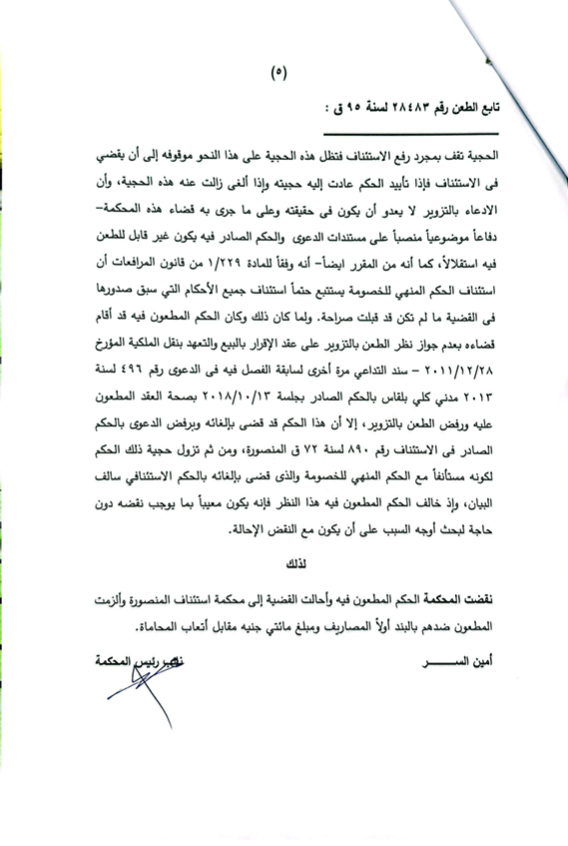 (٥)
تابع الطعن رقم ٢٨٤٨٣ لسنة ٩٥ ق :
الحجية تقف بمجرد رفع الاستئناف فتظل هذه الحجية على هذا النحو موقوفه إلى أن يقضي
فى الاستئناف فإذا تأييد الحكم عادت إليه حجيته وإذا ألغى زالت عنه هذه الحجية، وأن
الادعاء بالتزوير لا يعدو أن يكون فى حقيقته وعلى ما جرى به قضاء هذه المحكمة–
دفاعاً موضوعياً منصباً على مستندات الدعوى والحكم الصادر فيه يكون غير قابل للطعن
فيه استقلالاً، كما أنه من المقرر ايضاً– أنه وفقاً للمادة ١/٢٢٩ من قانون المرافعات أن
استئناف الحكم المنهي للخصومة يستتبع حتماً استئناف جميع الأحكام التي سبق صدورها
فى القضية ما لم تكن قد قبلت صراحة. ولما كان ذلك وكان الحكم المطعون فيه قد أقام
قضاءه بعدم جواز نظر الطعن بالتزوير على عقد الإقرار بالبيع والتعهد بنقل الملكية المؤرخ
٢٠١١/١٢/٢٨ – سند التداعي مرة أخرى لسابقة الفصل فيه فى الدعوى رقم ٤٩٦ لسنة
٢٠١٣ مدني كلي بلقاس بالحكم الصادر بجلسة ٢٠١٨/١٠/١٣ بصحة العقد المطعون
عليه ورفض الطعن بالتزوير، إلا أن هذا الحكم قد قضى بإلغائه وبرفض الدعوى بالحكم
الصادر فى الاستئناف رقم ٨٩٠ لسنة ٧٢ ق المنصورة، ومن ثم تزول حجية ذلك الحكم
لكونه مستأنفاً مع الحكم المنهي للخصومة والذى قضى بإلغائه بالحكم الاستئنافي سالف
البيان، وإذ خالف الحكم المطعون فيه هذا النظر فإنه يكون معيباً بما يوجب نقضه دون
حاجة لبحث أوجه السبب على أن يكون مع النقض الإحالة.
لذلك
نقضت المحكمة الحكم المطعون فيه وأحالت القضية إلى محكمة استئناف المنصورة وألزمت
المطعون ضدهم بالبند أولاً المصاريف ومبلغ مائتي جنيه مقابل أتعاب المحاماة.
أمين الســـــر
نائب رئيس المحكمة